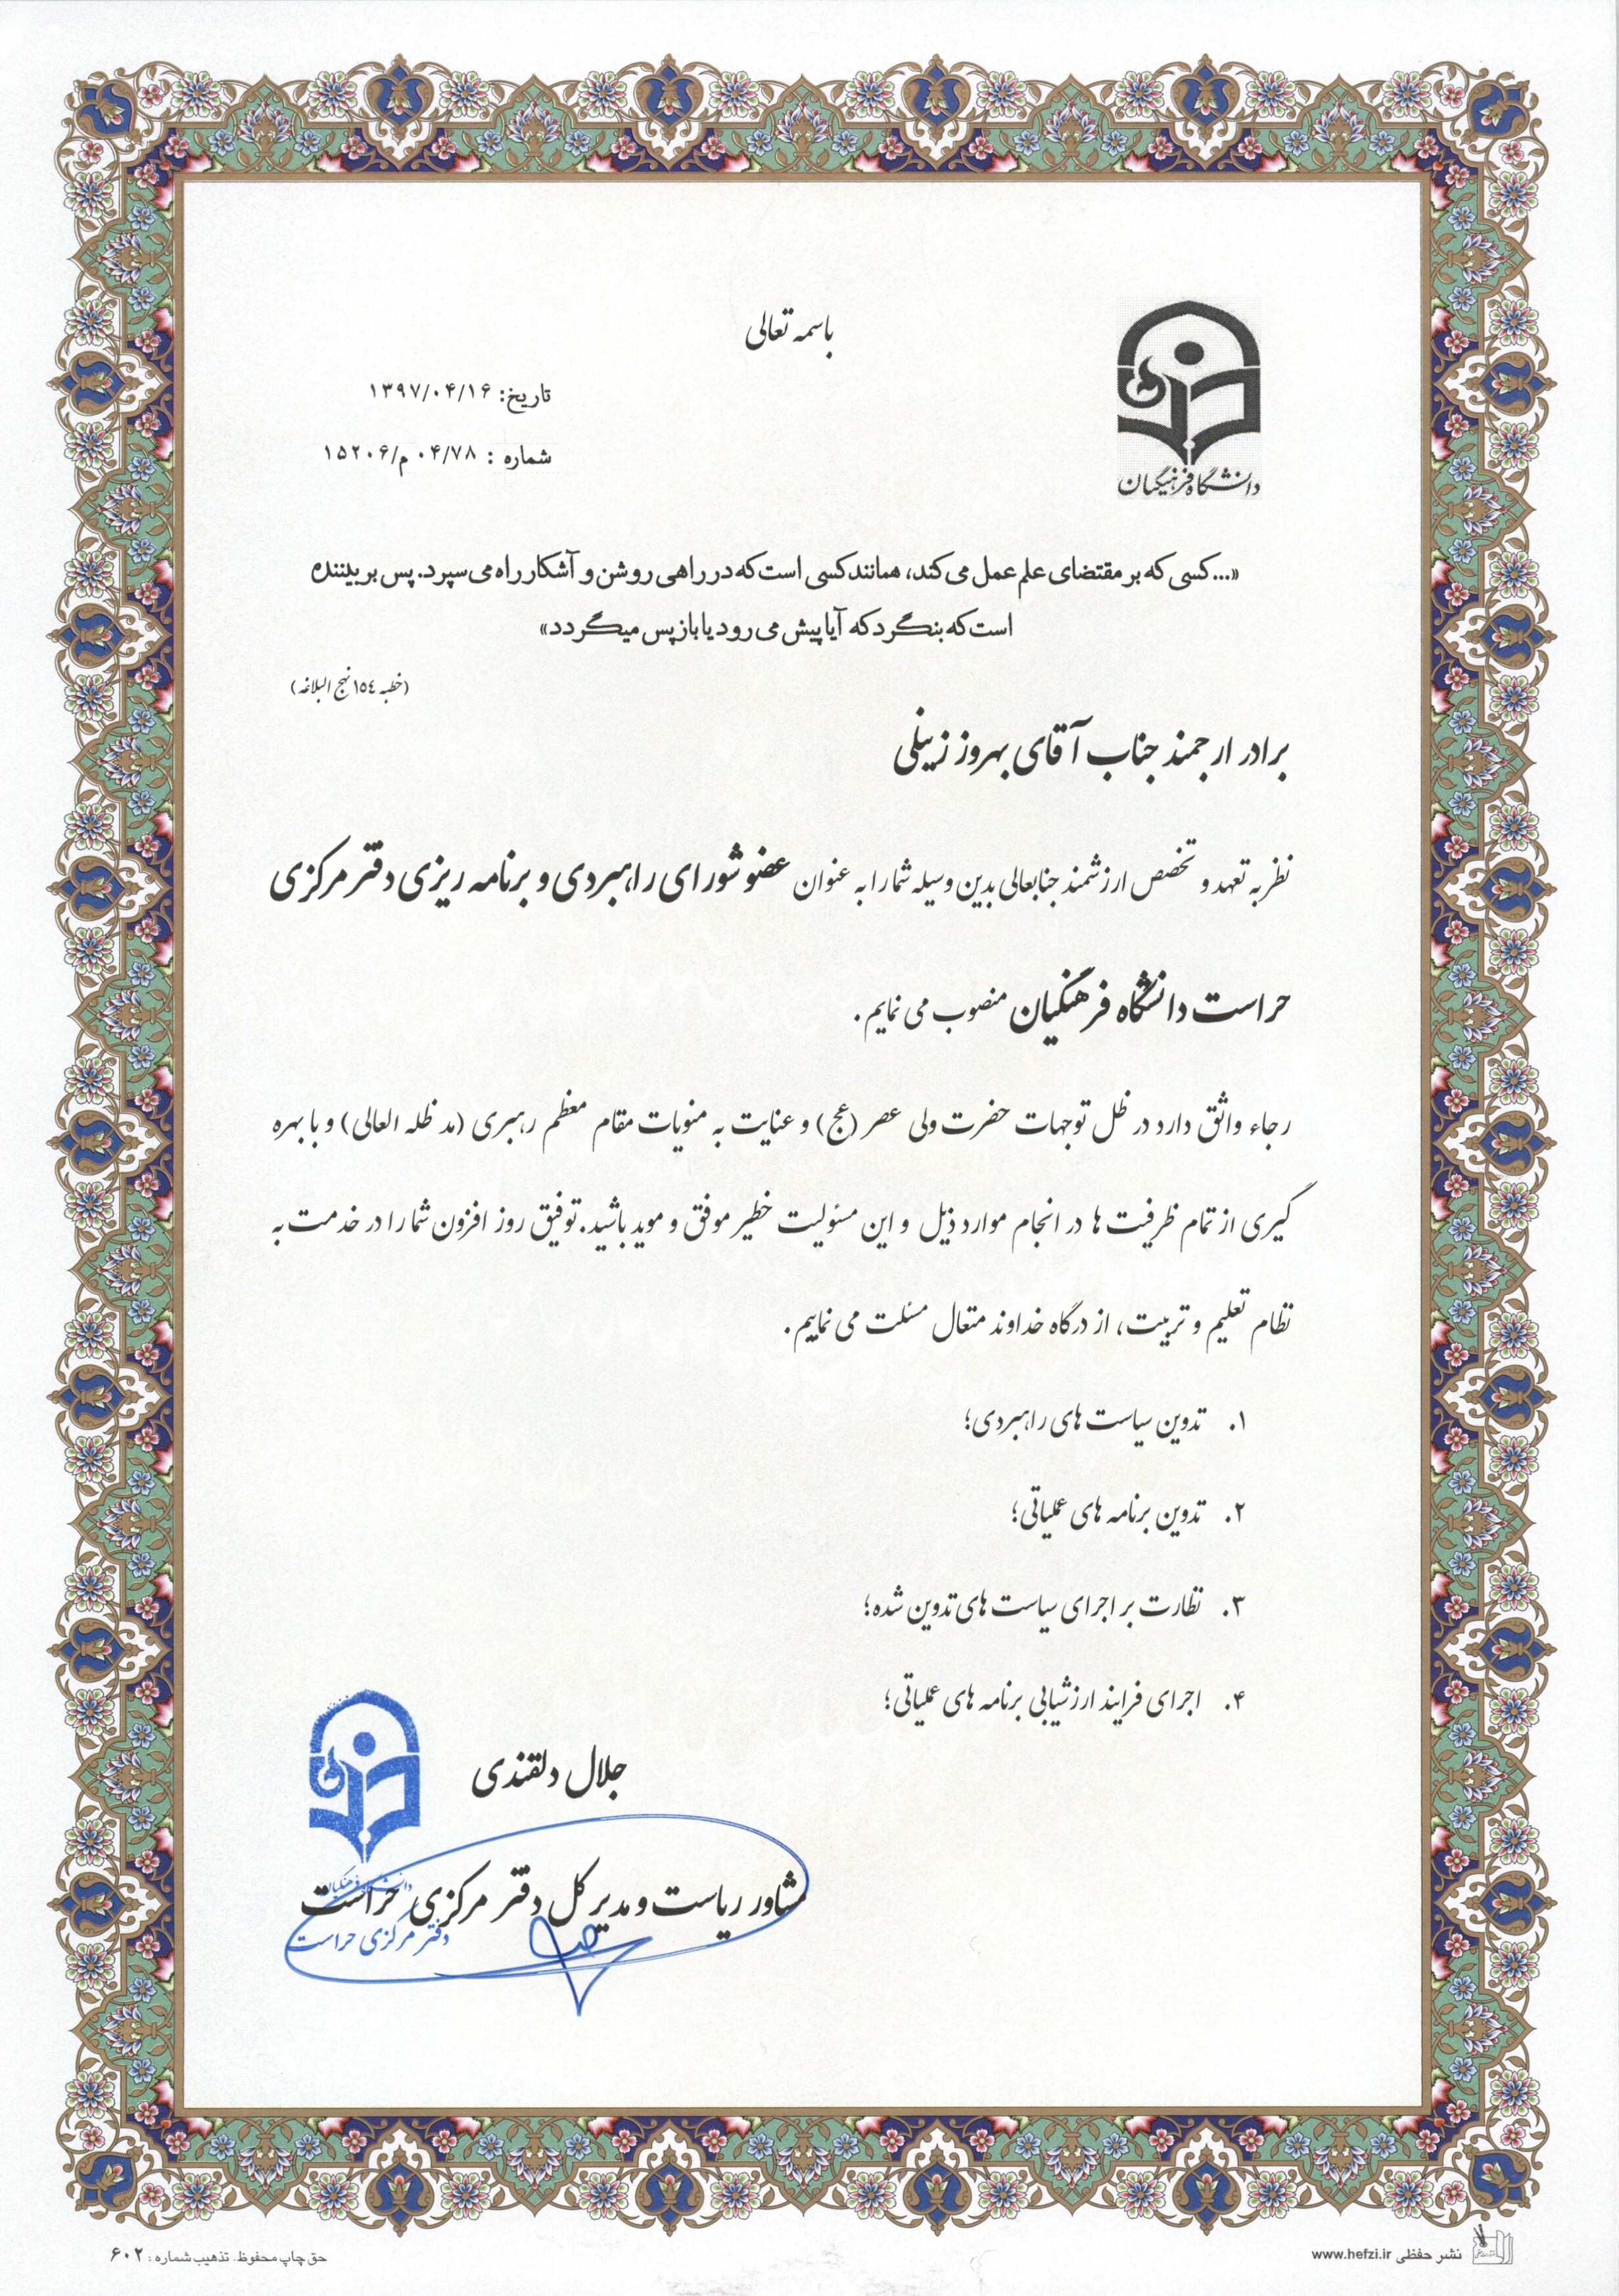 باسمه تعالی
تاریخ: ۱۳۹۷/۰۴/۱۶
شماره : ۰۴/۷۸ م/۱۵۲۰۶
دانشگاه فرهنگیان
«...کسی که بر مقتضای علم عمل می کند، همانند کسی است که در راهی روشن و آشکار راه می سپرد. پس بر بیننده
است که بنگرد که آیا پیش می رود یا باز پس میگردد»
(خطبه ١٥٤ نهج البلاغه)
برادر ارجمند جناب آقای بهروز زینلی
نظر به تعهد و تخصص ارزشمند جنابعالی بدین وسیله شما را به عنوان عضو شورای راهبردی و برنامه ریزی دفتر مرکزی
حراست دانشگاه فرهنگیان منصوب می نمایم.
رجاء واثق دارد در ظل توجهات حضرت ولی عصر (عج) و عنایت به منویات مقام معظم رهبری (مد ظله العالی) و با بهره
گیری از تمام ظرفیت ها در انجام موارد ذیل و این مسئولیت خطیر موفق و موید باشید. توفیق روز افزون شما را در خدمت به
نظام تعلیم و تربیت، از درگاه خداوند متعال مسئلت می نماییم.
۱. تدوین سیاست های راهبردی؛
۲. تدوین برنامه های عملیاتی؛
۳. نظارت بر اجرای سیاست های تدوین شده؛
۴. اجرای فرایند ارزشیابی برنامه های عملیاتی؛
جلال دلقندی
مشاور ریاست و مدیر کل دفتر مرکزی حراست
دانشگاه فرهنگیان
دفتر مرکزی حراست
نشر حفظی www.hefzi.ir
حق چاپ محفوظ. تذهیب شماره : ۶۰۲